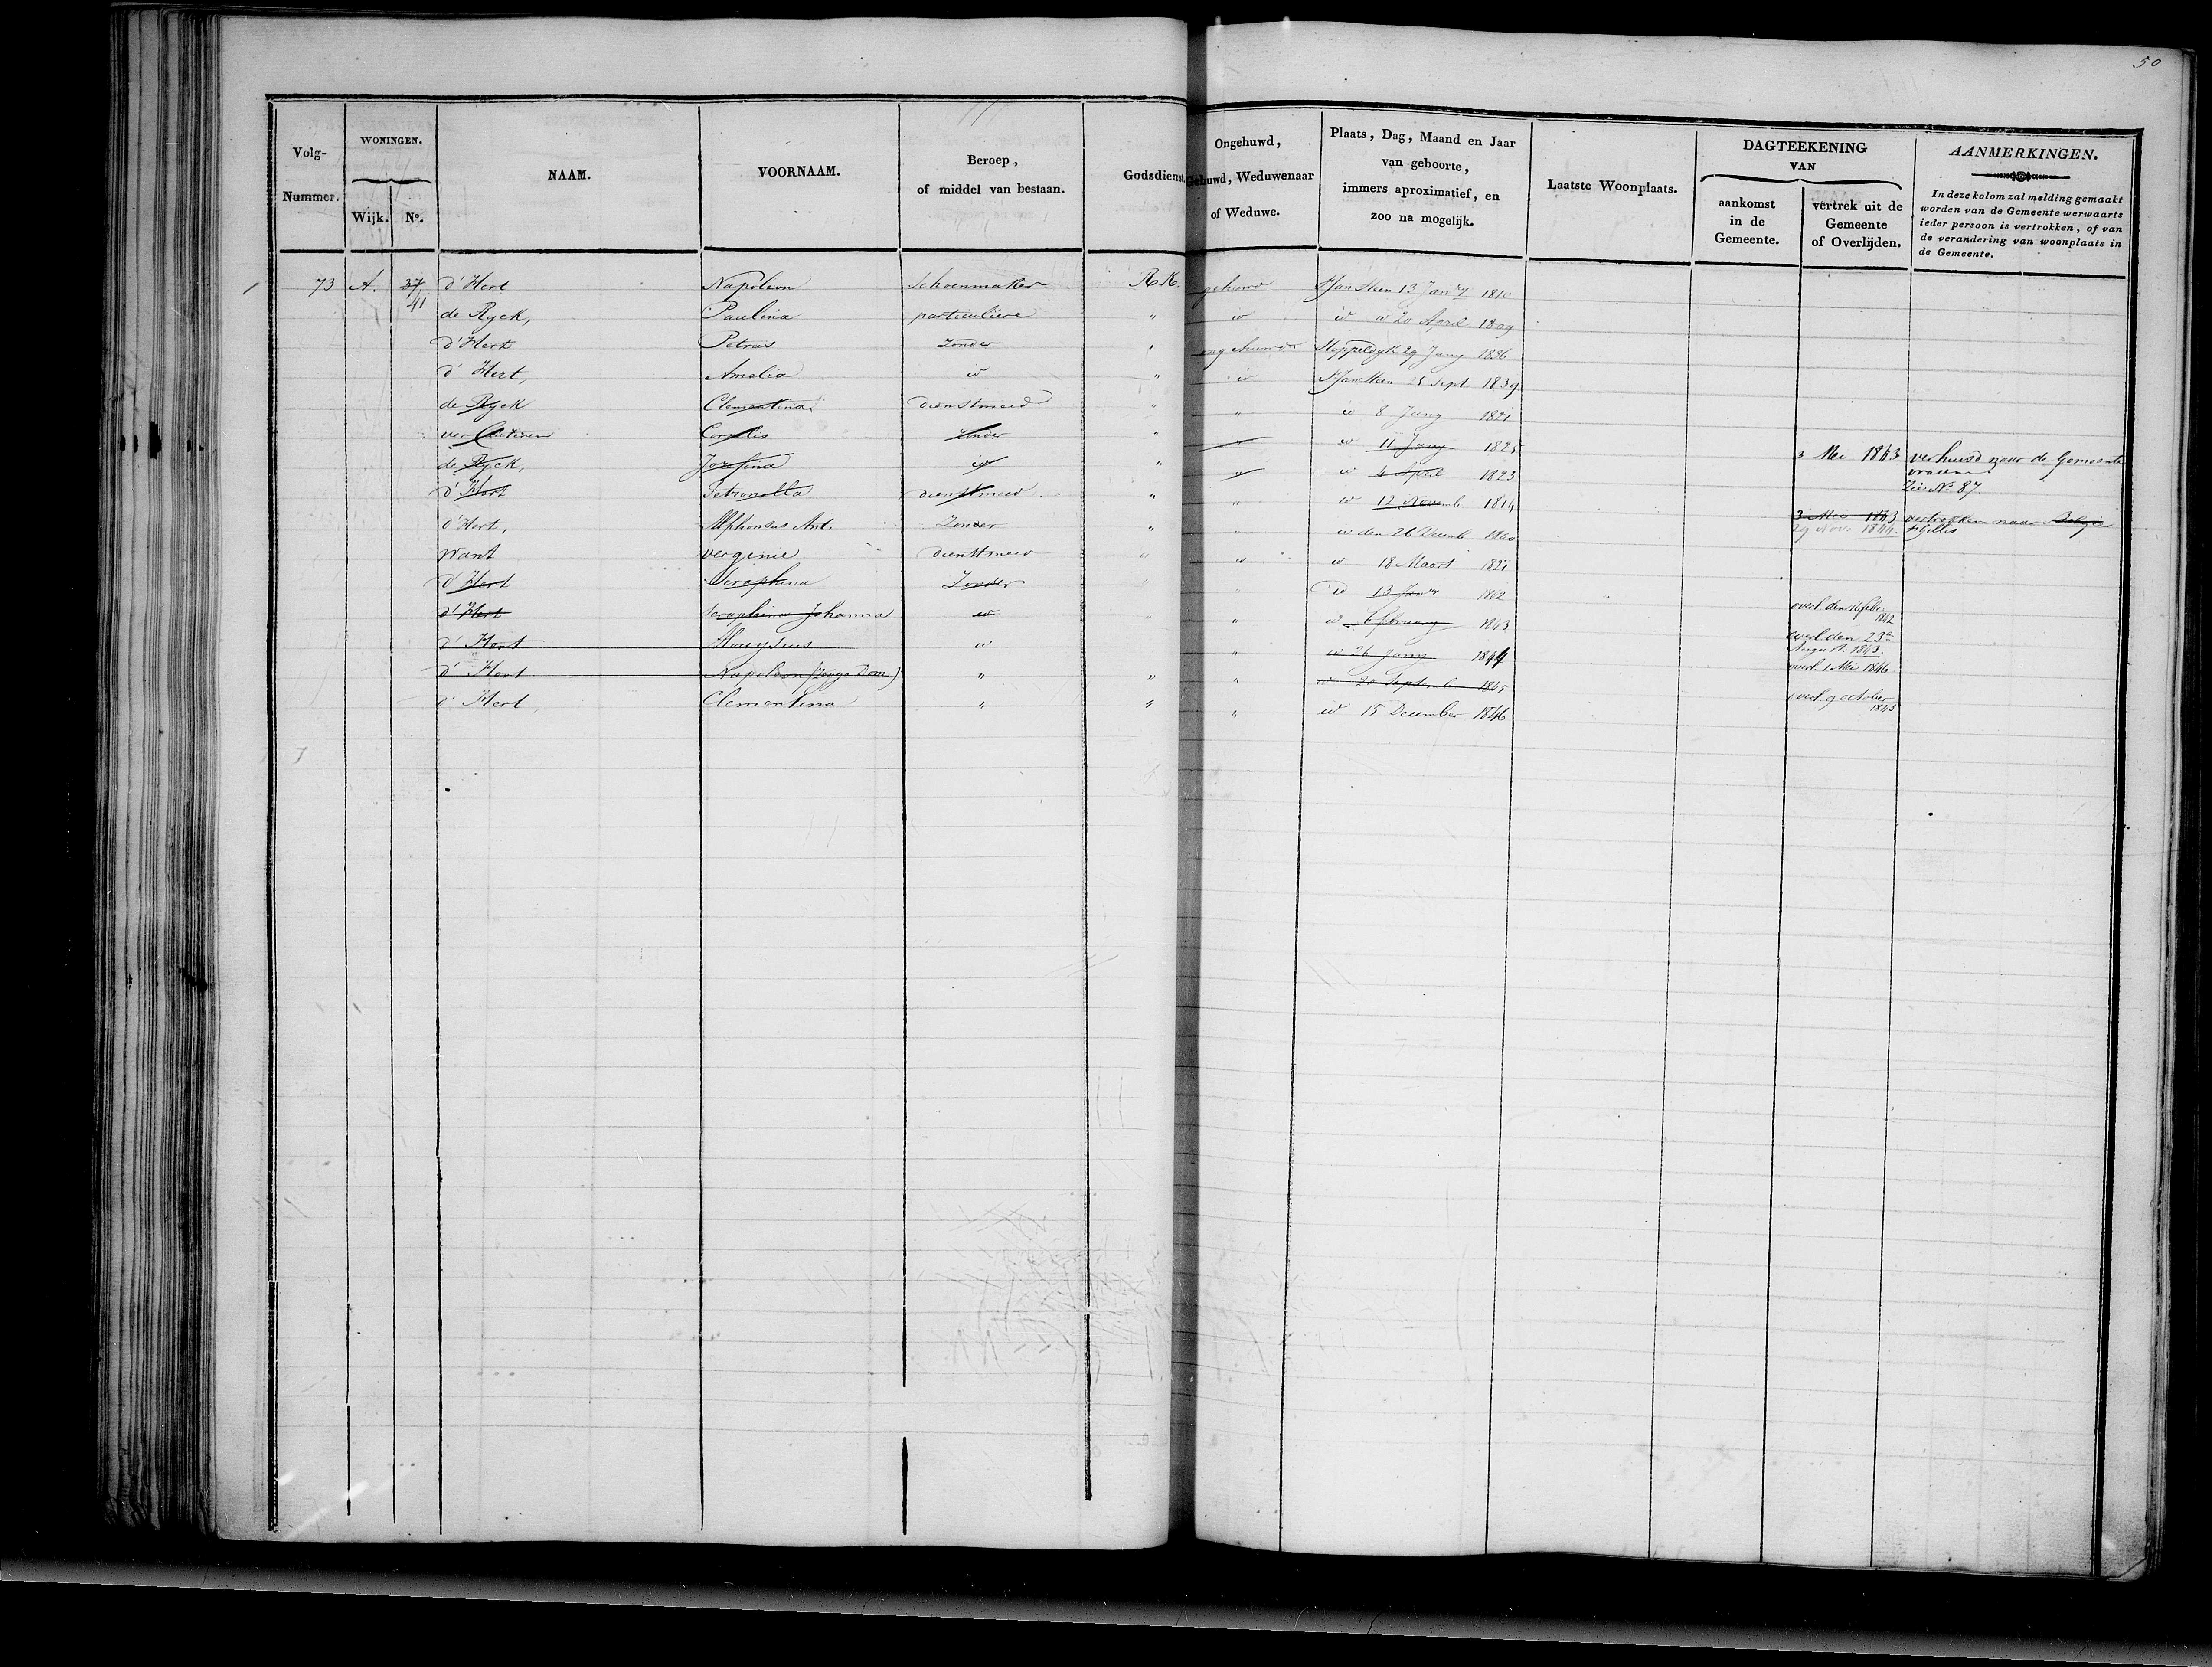 50
Volg-Nummer. WONINGEN. Wijk. No. NAAM. VOORNAAM. Beroep, of middel van bestaan. Godsdienst. Ongehuwd, Gehuwd, Weduwenaar of Weduwe. Plaats, Dag, Maand en Jaar van geboorte, immers aproximatief, en zoo na mogelijk. Laatste Woonplaats. DAGTEEKENING VAN aankomst in de Gemeente. vertrek uit de Gemeente of Overlijden. AANMERKINGEN. In deze kolom zal melding gemaakt worden van de Gemeente werwaarts ieder persoon is vertrokken, of van de verandering van woonplaats in de Gemeente.
73 A. 37 d'Hert Napoleon Schoenmaker R.K. gehuwd St Jan Steen 13 Jan ry 1810
41 de Ryck, Paulina particuliere " id id id 20 April 1809
d'Hert Petrus Zonder " ongehuwd Stoppeldyk 29 Juny 1836
d'Hert, Amelia id " id St Jan Steen 25 Sept 1839
de Ryck Clementina dienstmeid " " id 8 Juny 1821
ver Cauteren Cornelis Zonder " id 11 Juny 1825
de Ryck, Jozefina id " id id 4 April 1823 3 Mei 1843 verhuisd naar de Gemeente
Zie No 87
d'Hert Petronella dienstmeid " " id 12 Novemb 1814
d'Hert, Alphonsus Ant. Zonder " " id den 26 Decemb 1840 3 Mei 1843 vertrokken naar Belgie
29 Nov. 1844. St Gillis
Want verginie dienstmeid " id id 18 Maart 1821
d'Hert Seraphina Zonder " " id 13 Jan ry 1842
d'Hert Seraphina Johanna id " " id 6 february 1843 overl. den 16 febr. 1842
d'Hert Alouysius id " id 26 Juny 1844 overl den 23e August. 1843.
d'Hert Napoleon ( Dom) " " " id 20 Septemb 1845 overl. 1 Mei 1846
d'Hert Clementina " " " id 15 December 1846 overl. 9 october 1845